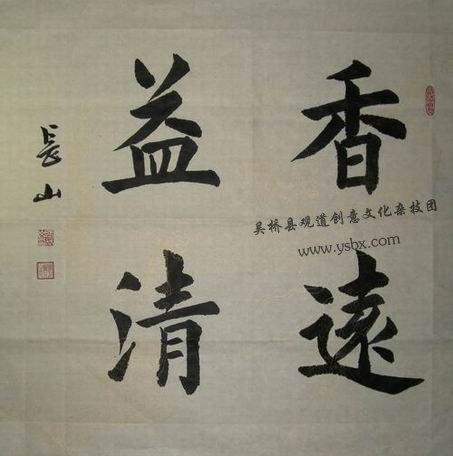 香遠
益清
長山
吴桥县观道创意文化杂技团
www.ysbx.com